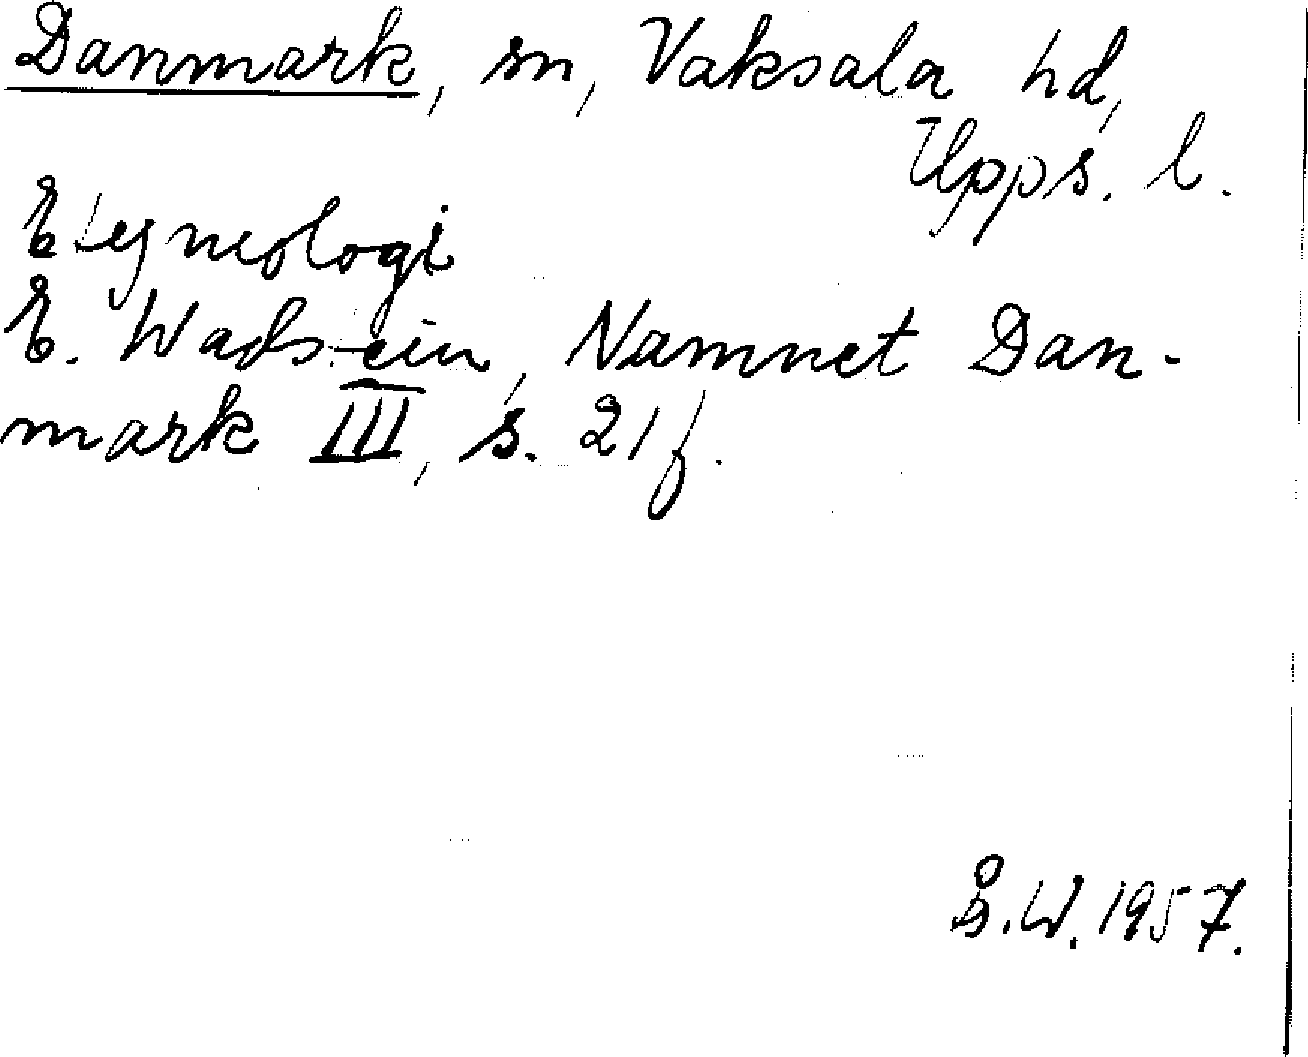 Danmark, sn, Vaksala hd,
Upps. l.
Etymologi
E. Wadstein, Namnet Dan-
mark III, s. 21 f.
S.W. 1957.